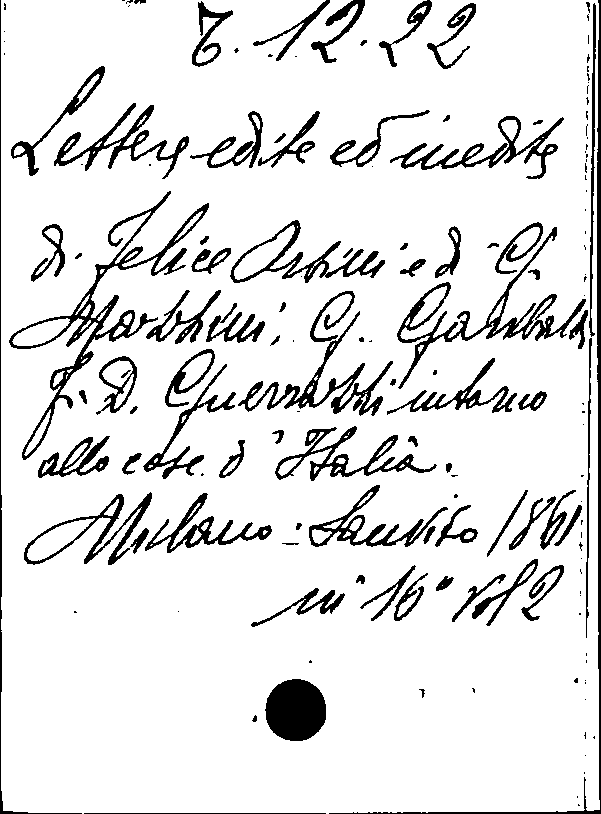 7.12.22
Lettere edite ed inedite
di Felice Orsini e di G.
Mazzini, G. Garibaldi
F. D. Guerrazzi intorno
alle cose d'Italia.
Milano - Sanvito 1861
in 16° vol 2